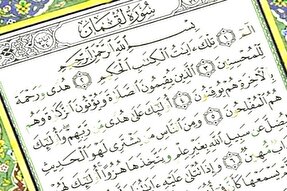 سُورَةُ لُقْمَانَ
بِسْمِ اللَّهِ الرَّحْمَٰنِ الرَّحِيمِ
الٓمٓ ۝١ تِلْكَ ءَايَٰتُ الْكِتَٰبِ الْحَكِيمِ ۝٢ هُدًى وَرَحْمَةً
لِّلْمُحْسِنِينَ ۝٣ الَّذِينَ يُقِيمُونَ الصَّلَوٰةَ وَيُؤْتُونَ الزَّكَوٰةَ وَهُم
بِالْأَخِرَةِ هُمْ يُوقِنُونَ ۝٤ أُوْلَٰٓئِكَ عَلَىٰ هُدًى مِّن رَّبِّهِمْ وَأُوْلَٰٓئِكَ
هُمُ الْمُفْلِحُونَ ۝٥ وَمِنَ النَّاسِ مَن يَشْتَرِى لَهْوَ الْحَدِيثِ
لِيُضِلَّ عَن سَبِيلِ اللَّهِ بِغَيْرِ عِلْمٍ وَيَتَّخِذَهَا هُزُوًا أُوْلَٰٓئِكَ لَهُمْ
مُّهِينٌ ۝٦ وَإِذَا تُتْلَىٰ عَلَيْهِ